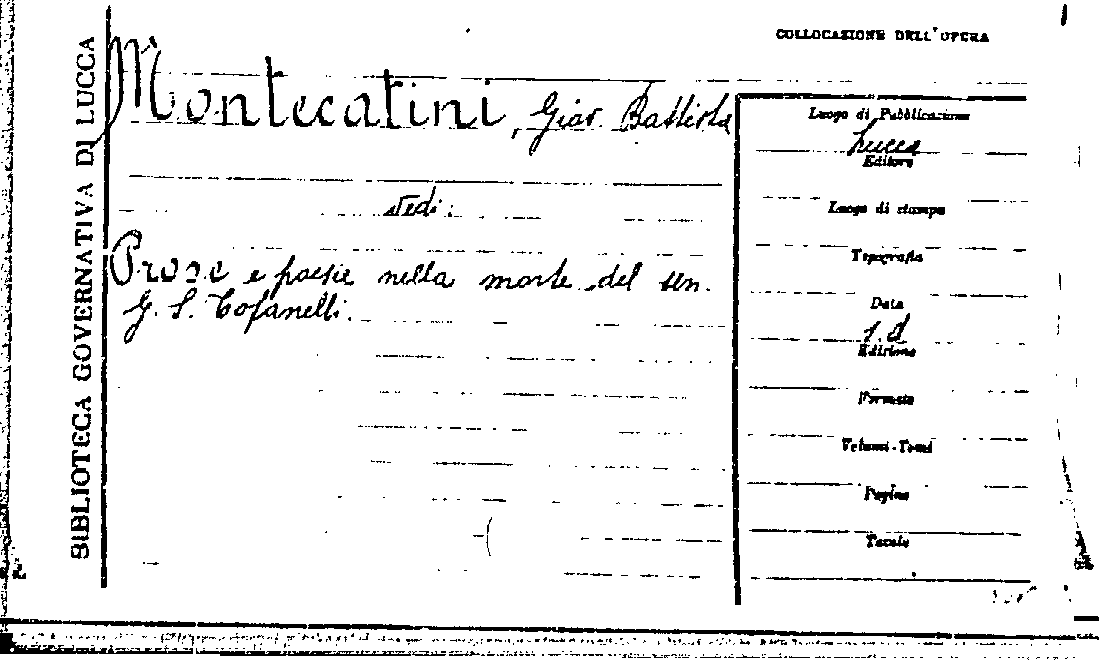 COLLOCAZIONE DELL'OPERA
BIBLIOTECA GOVERNATIVA DI LUCCA
Montecatini, Giov. Battista
vedi:
Prose e poesie nella morte del sen.
G. S. Cofanelli.
Luogo di Pubblicazione
Lucca
Editore
Luogo di stampa
Tipografia
Data
s. d
Edizione
Formato
Volumi-Tomi
Pagine
Tavole